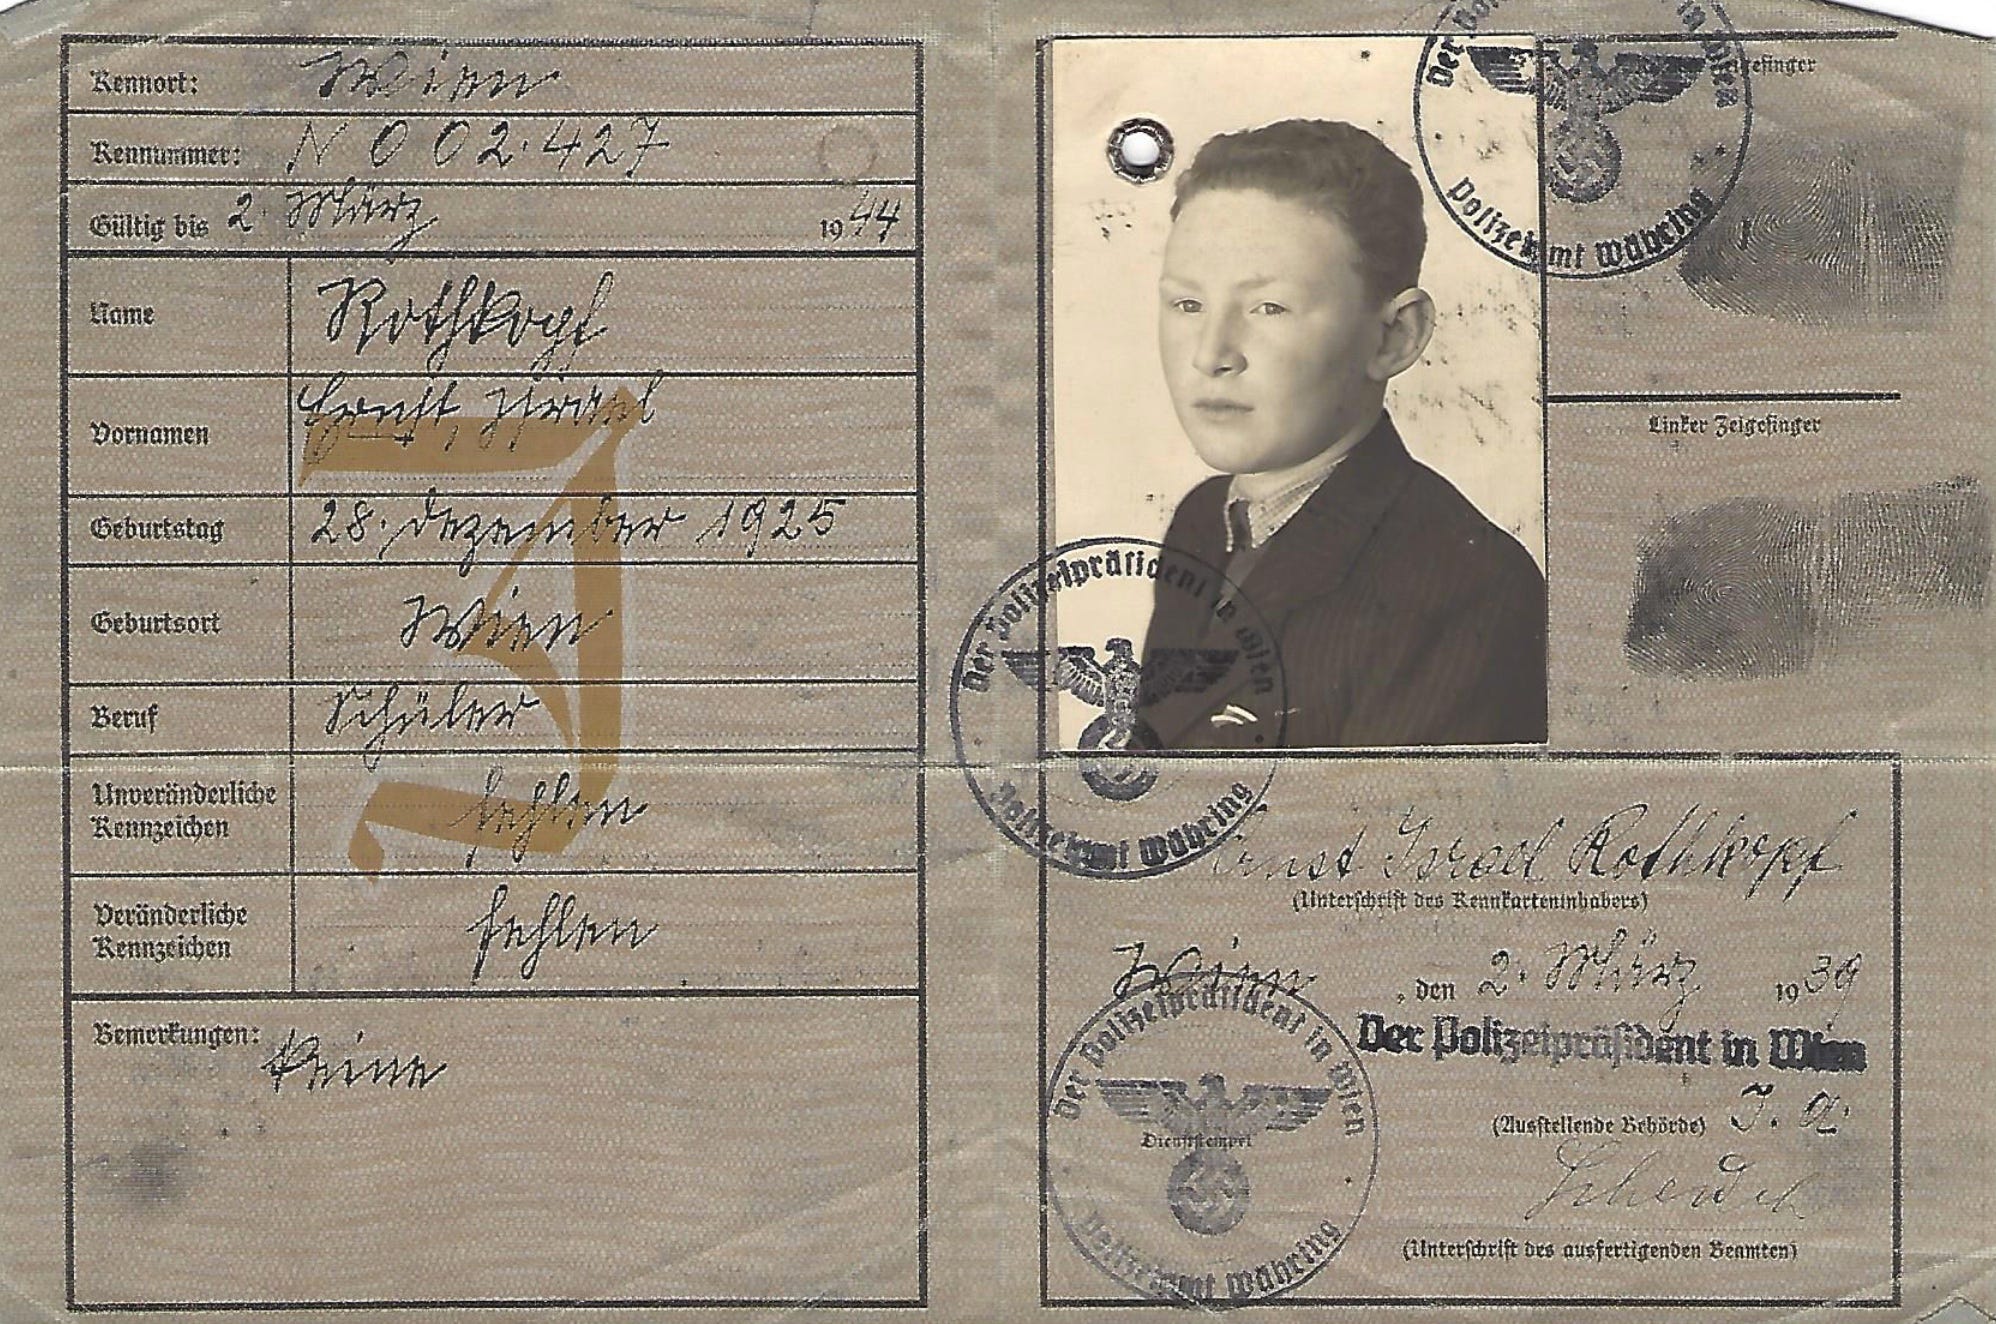 Kennort: Wien
Kennummer: N 0 02.427
Gültig bis 2. März 1944
Name Rothkopf
Vornamen Ernst, Israel
Geburtstag 28. Dezember 1925
Geburtsort Wien
Beruf Schüler
Unveränderliche
Kennzeichen fehlen
Veränderliche
Kennzeichen fehlen
Bemerkungen: keine
J
Der Polizeipräsident in Wien
Polizeiamt Währing
Zeigefinger
Linker Zeigefinger
Der Polizeipräsident in Wien
Polizeiamt Währing
Ernst Israel Rothkopf
(Unterschrift des Kennkarteninhabers)
Wien, den 2. März 1939
Der Polizeipräsident in Wien
(Ausstellende Behörde) I. A.
Der Polizeipräsident in Wien
Dienststempel
Polizeiamt Währing
(Unterschrift des ausfertigenden Beamten)